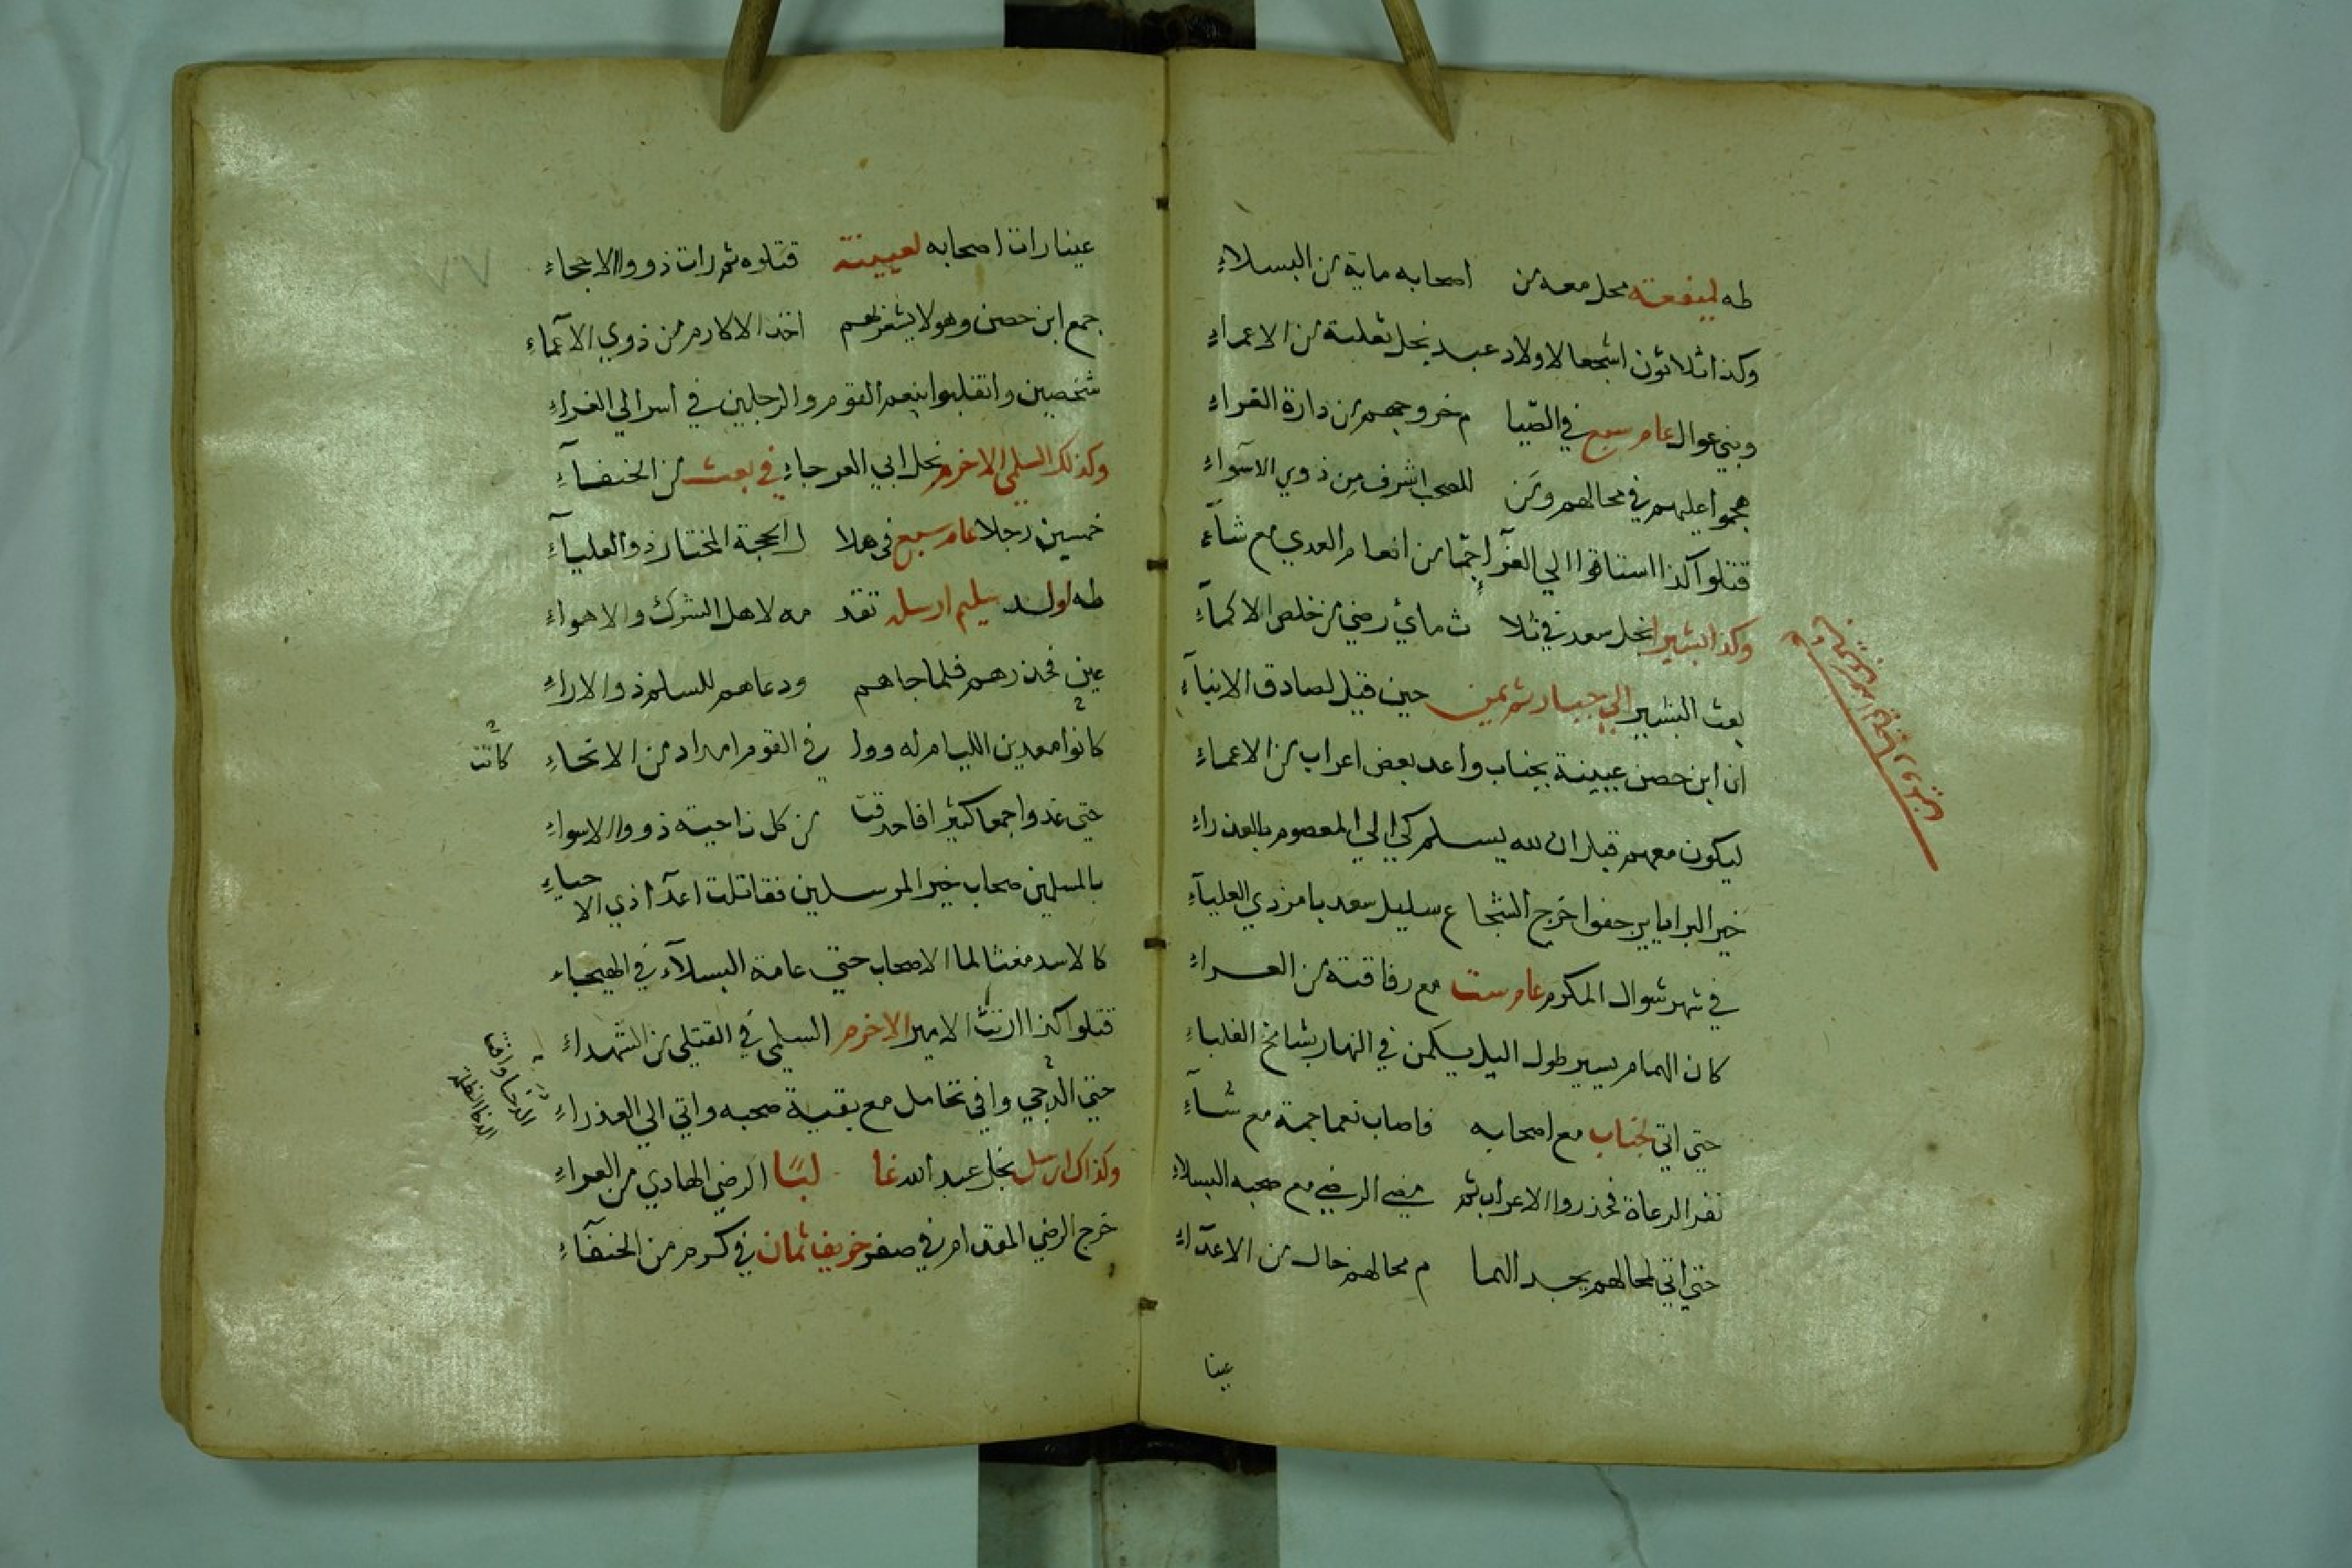 طه لميفعة محل معه من اصحابه ماية من البسلاءِ
وكذا ثلاثون اشجعا لاولاد عبد نجل ثعلبة من الاعراءِ
وبني عوال عام سبع في الصّيا م خروجهم من دارة القراءِ
هجموا عليهم في محالهم ومَن للصحب اشرف مِن ذوي الاسوآءِ
قتلوا كذا استاقوا الي الغرآءِ جمّا من انعام العدي مع شآءِ
وكذا بشيرا نجل سعد في ثلا ث مائ رضي من خلص الاكمآءِ
بعث البشير الي جبار ثم يمن حين قيل لصادق الانبآءِ
ان ابن حصن عيينة بجناب واعد بعض اعراب من الاعماءِ
ليكون معهم قبل ان لله يسلم كي الي المعصوم بالعذراءِ
خير البرايا يرجفوا خرج الشجا ع سليل سعد بامر ذي العليآءِ
في شهر شوال المكرم عام ست مع رفاقته من العراءِ
كان الهمام يسير طول اليل يكمن في النهار بشامخ الغلباءِ
حتي اتي لجناب مع اصحابه فاصاب نعما جمة مع شآءِ
نفر الرعاة فحذروا الاعراب ثم مضي الرضي مع صحبه البسلاءِ
حتي اتي لمحالهم يجد الهما م محالهم خال من الاعدآءِ
عينا
عينا رات اصحابه لعيينة قتلوه ثم رات ذووا الاحجاءِ
جمع ابن حصن وهو لا يشعر بهم اخذ الاكارم من ذوي الآعماءِ
شخصين وانقلبوا بنعم القوم والرجلين في اسر الي الغراءِ
وكذلك السلمي الاخرم نجل ابي العوجاءِ في بعث من الحنفآءِ
خمسين رجلا عام سبع في هلا ل الحجة المختار ذو العليآءِ
طه لولد سليم ارسل تقد مه لاهل الشرك والاهواءِ
عين فحذرهم فلما جاهم ودعاهم للسلم ذو الاراءِ
كانوا معدين الليام له وول في القوم امداد من الانحاءِ
كانت
حتي غدوا جمعا كثيرا فاحدقت من كل ناحية ذووا الاسواءِ
بالمسلمين صحاب خير المرسلين فقاتلت اعدآ ذي الاحياءِ
كالاسد مغتالما الاصحاب حتي عامة البسلآء في الهيجاءِ
قتلوا كذا ارتث الامير الاخرم السلمي في القتلي من الشهداءِ
حتي الدجي وافي تحامل مع بقية صحبه واتي الي العذراءِ
وكذاك ارسل نجل عبد الله غا لبًا الرضي الهادي من العراءِ
خرج الرضي المقدام في صفر خريف ثمان في كرم من الحنفآءِ